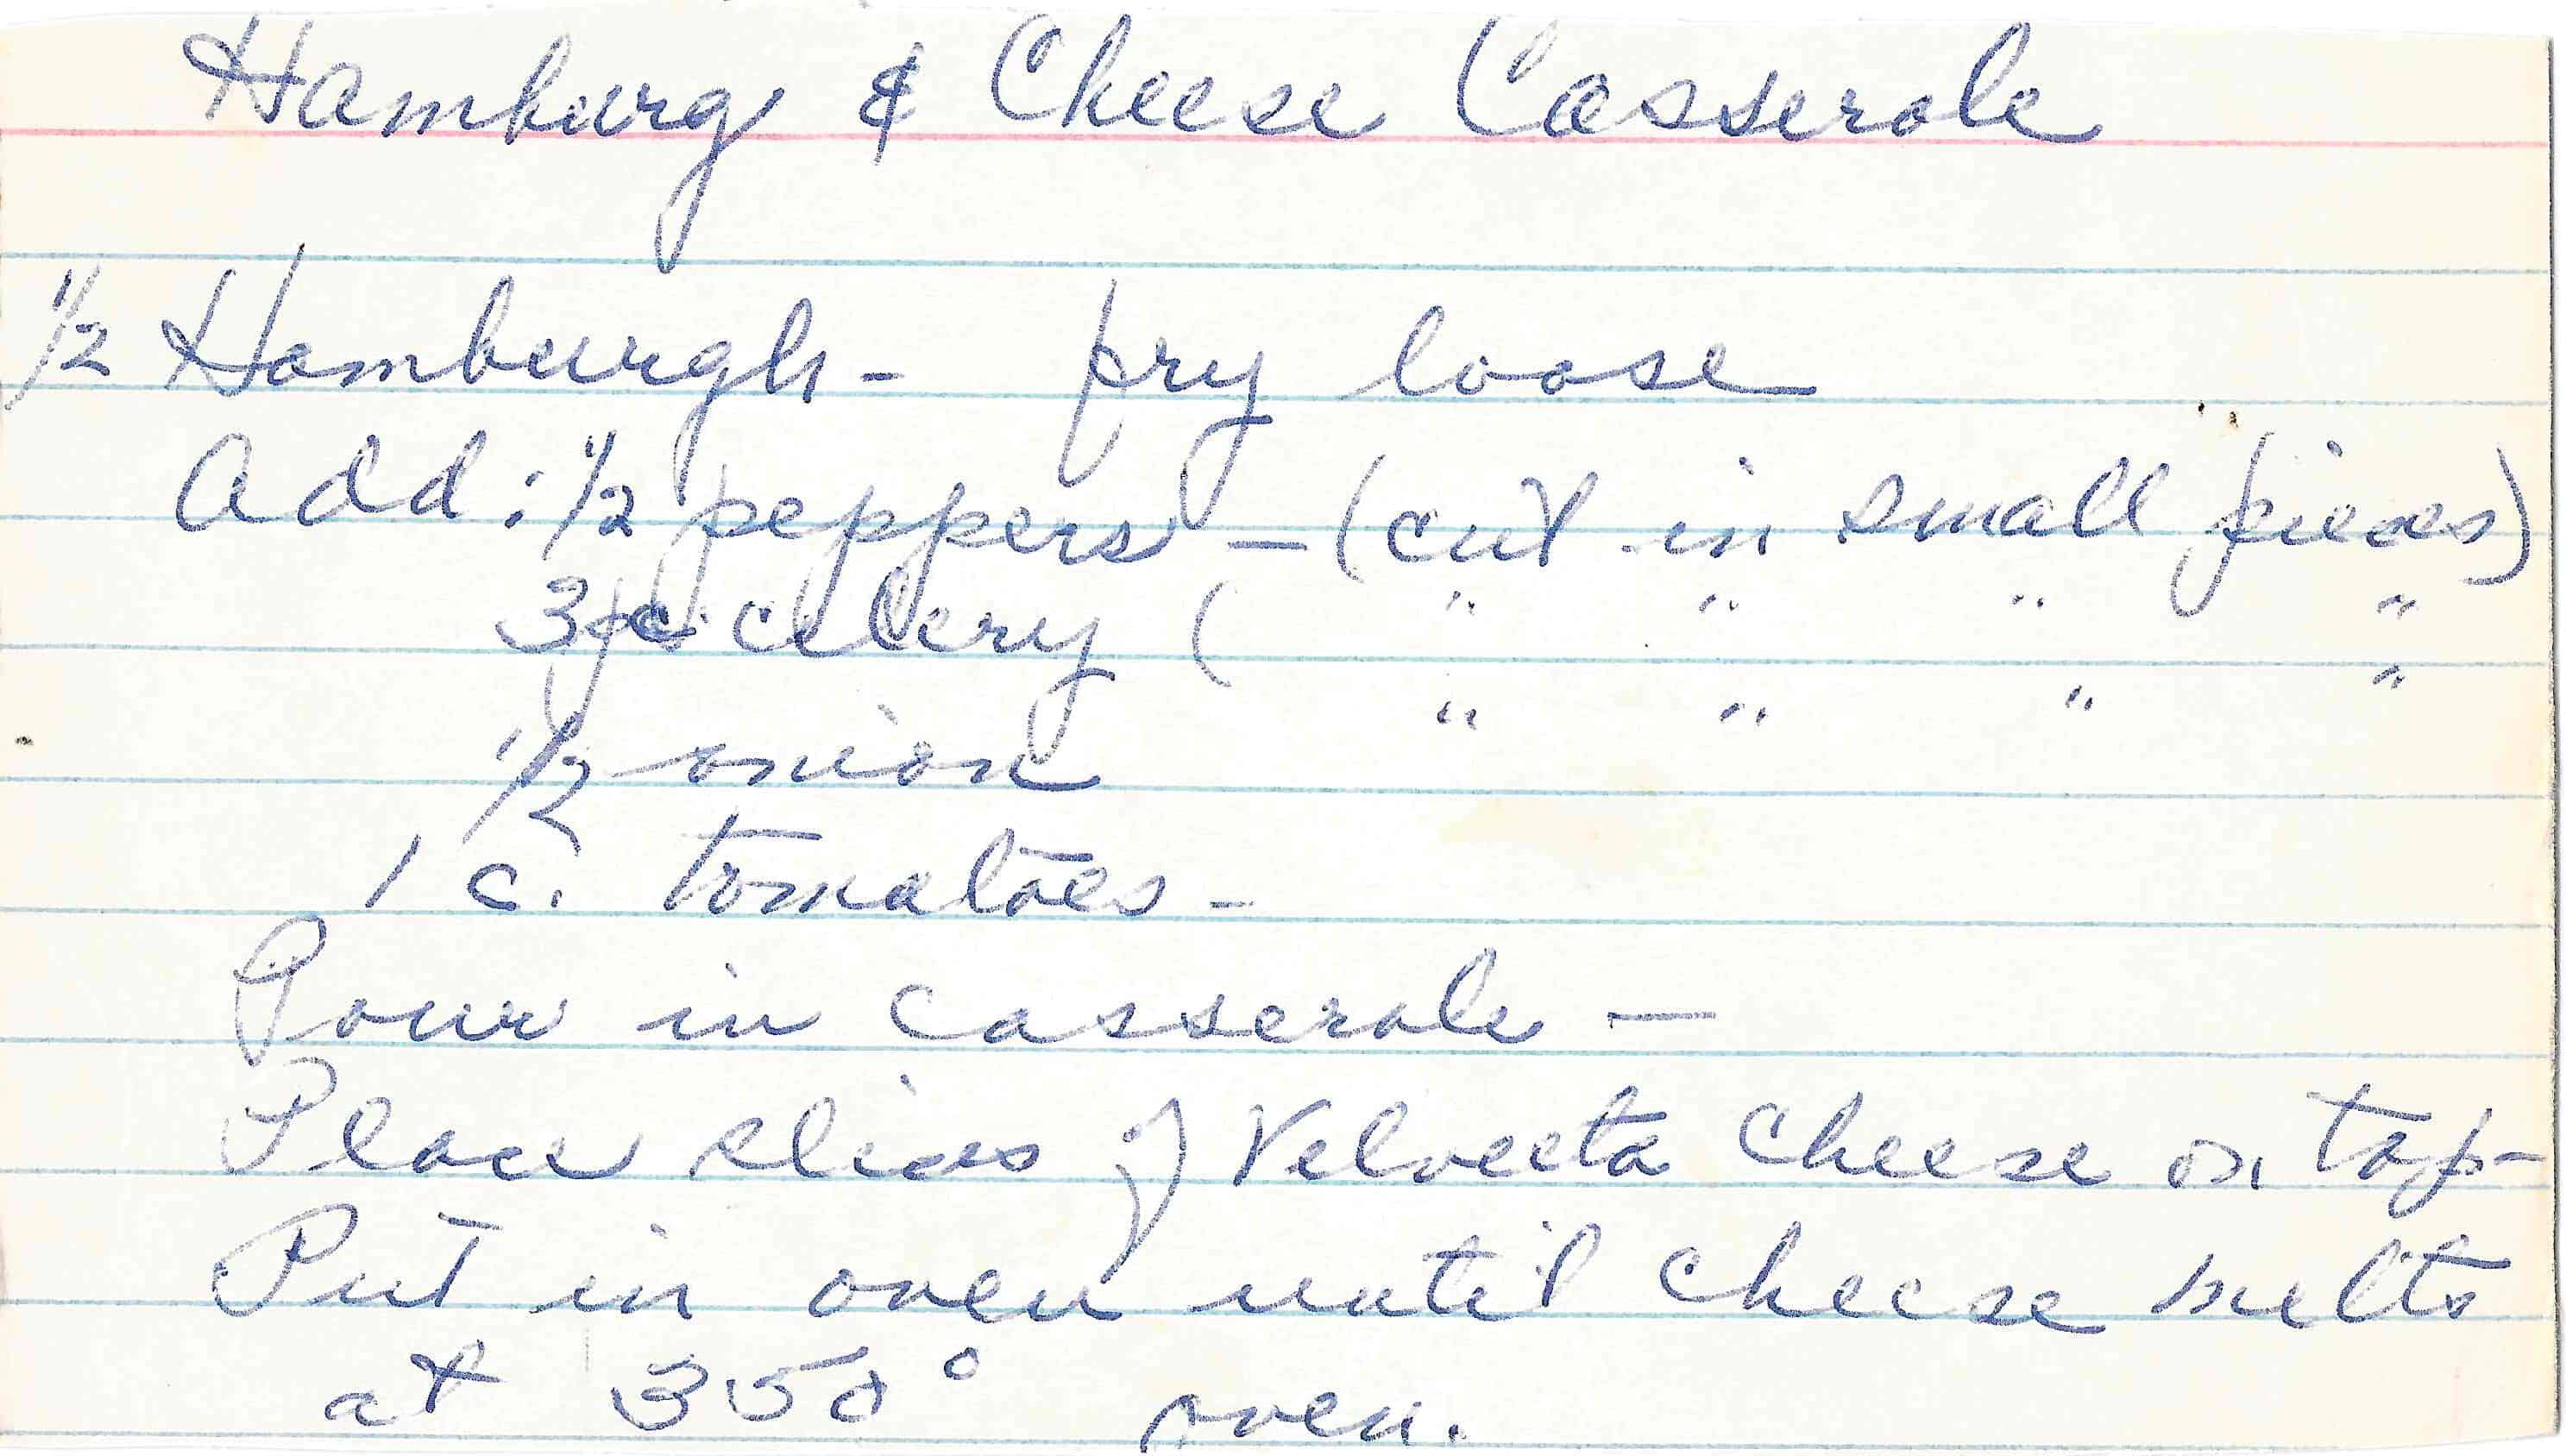 Hamburg & Cheese Casserole
1/2 Hamburgh - fry loose
Add: 1/2 peppers - (cut in small pieces)
3 pc celery ( " " " "
1/2 onion " " " "
1 c. tomatoes -
Pour in casserole -
Place slices of Velveeta Cheese on top -
Put in oven until cheese melts
at 350° oven.